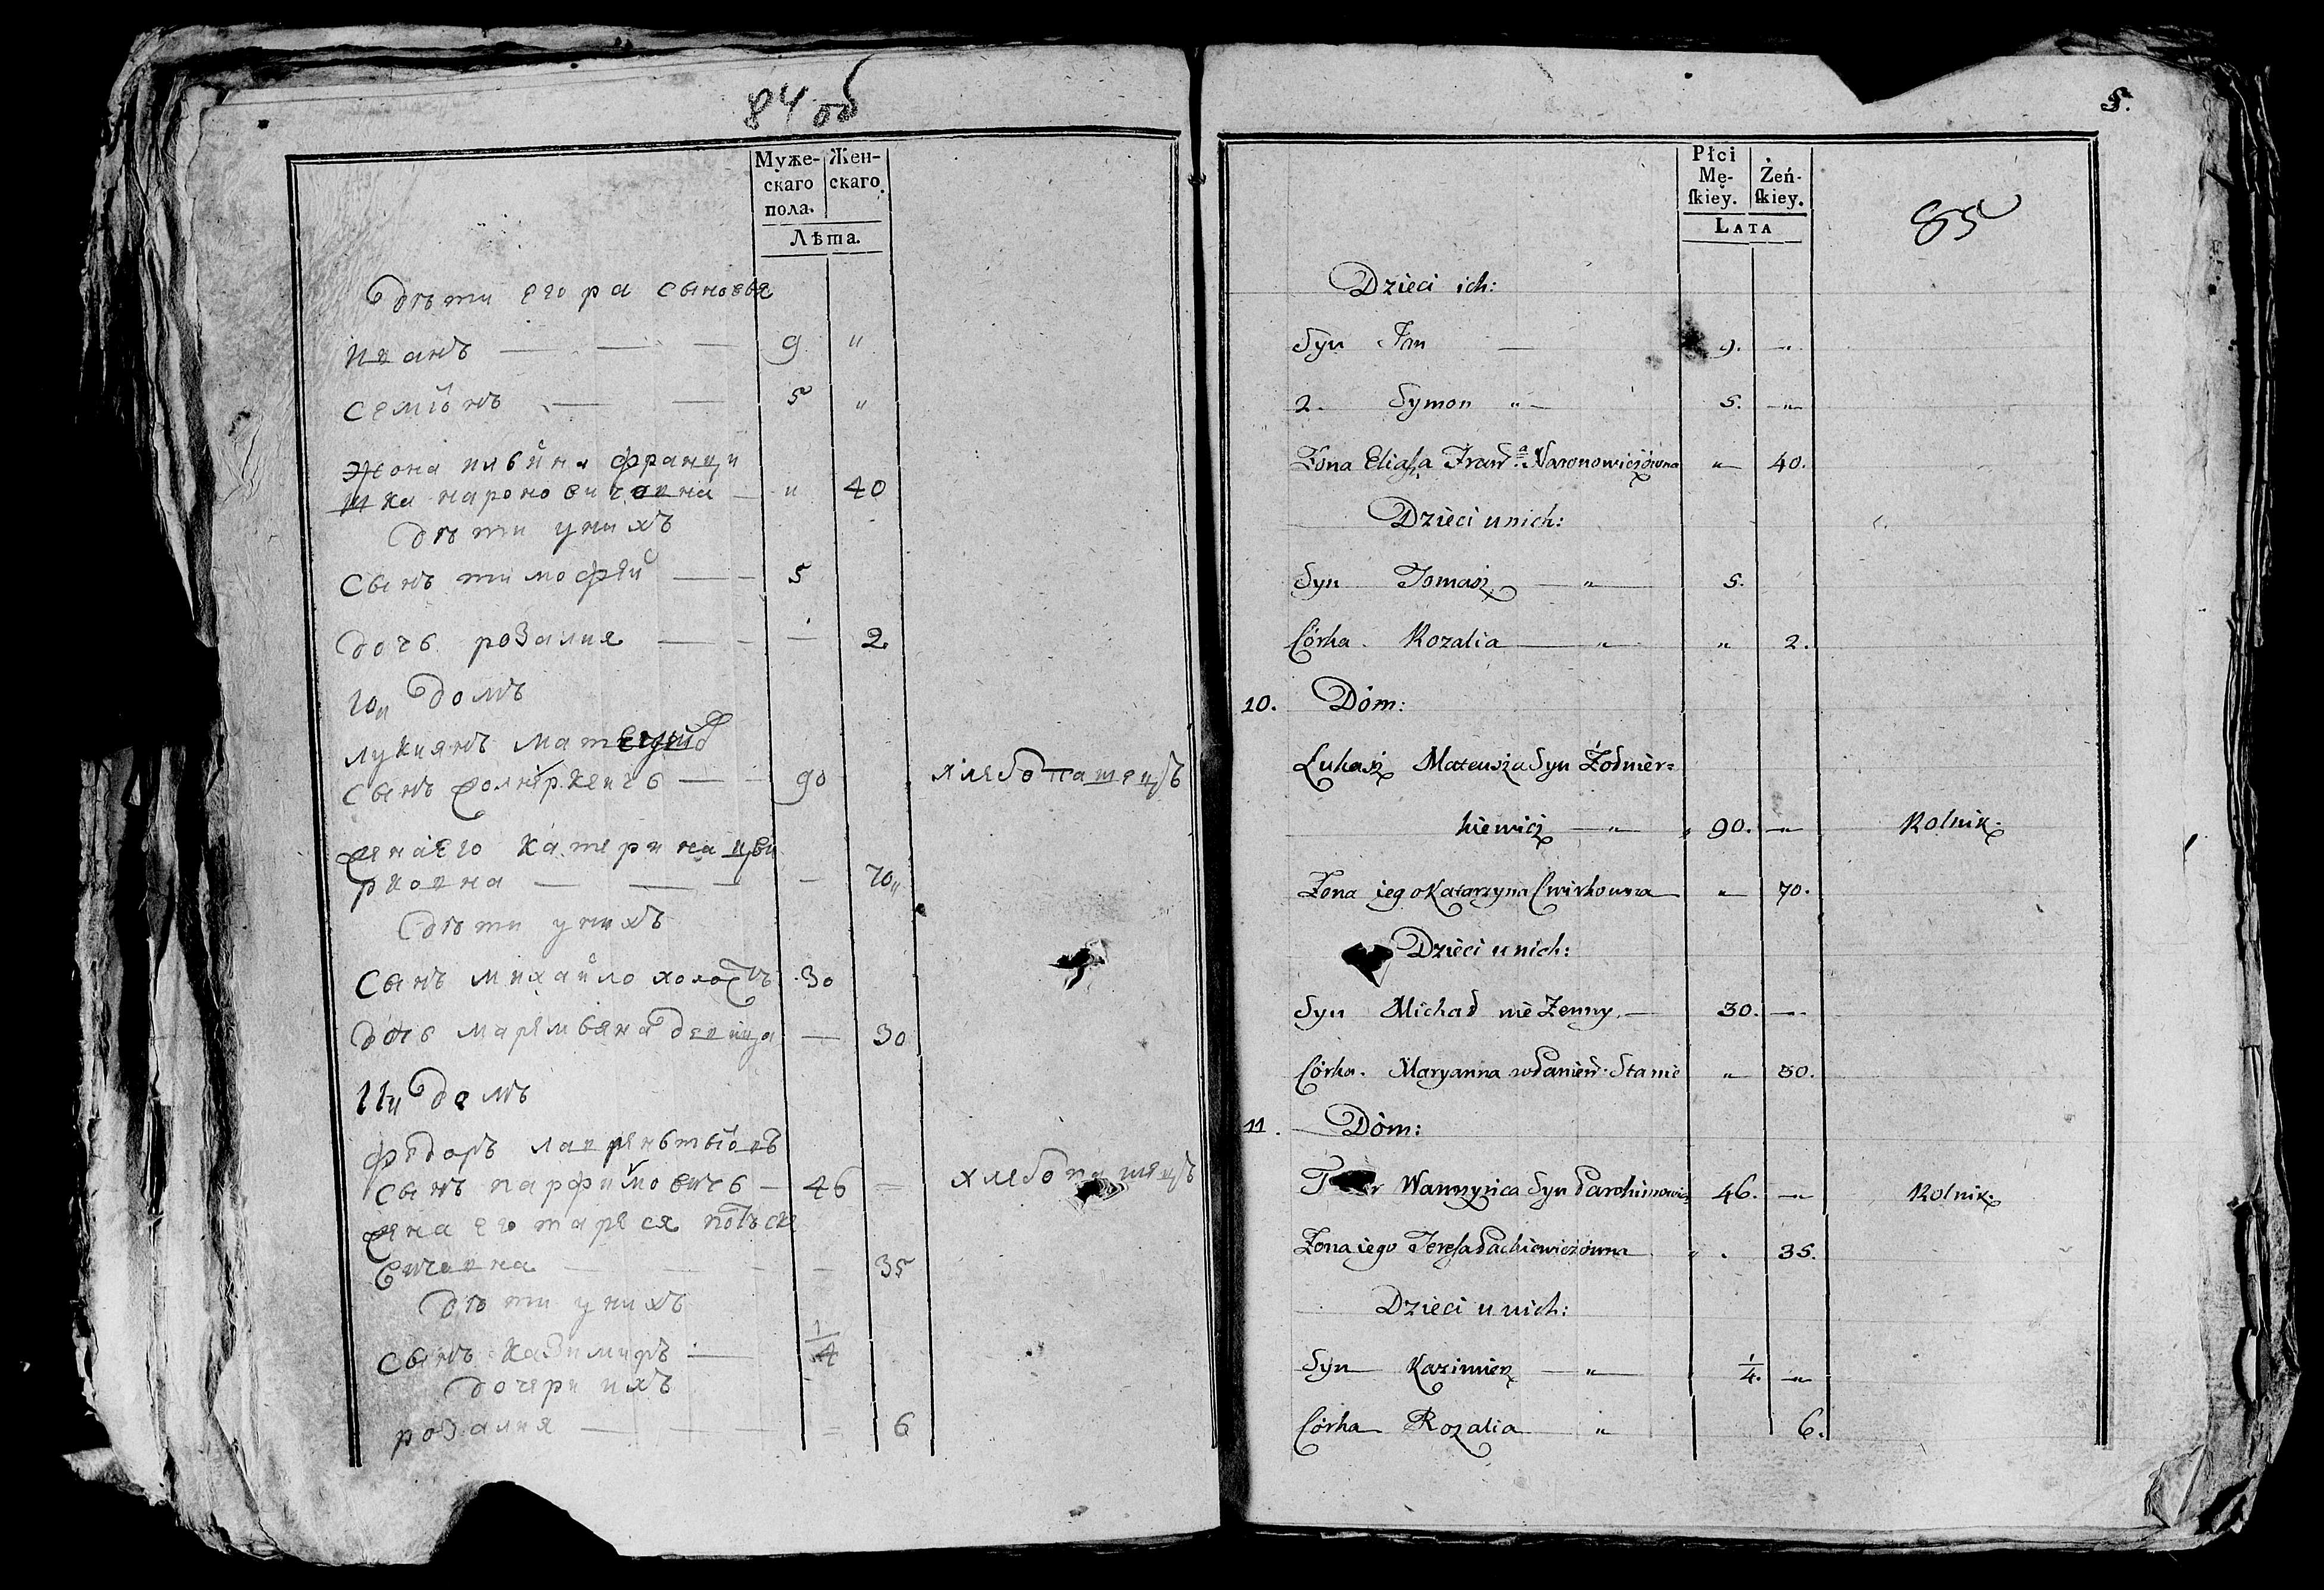 84 об
Муже-
скаго
пола.
Жен-
скаго
Лѣта.
дѣти егора сыновья
иванъ — 9 "
семіонъ — 5 "
жона ильина францы
шка нароновичовна — " 40
дѣти унихъ
сынъ тимофѣй — 5
дочь розалия — 2
10" домъ
лукиянъ
сынъ — 90 хлебопашецъ
жена его катерина цви
рковна — 70"
дѣти унихъ
сынъ михайло холостъ 30
дочь марямьяна девица — 30
11" домъ
фѣдоръ лаврѣнтьювъ
сынъ парфимовичь — 46 = хлебопашецъ
жена его тарѣся
вичовна — 35
дѣти унихъ
сынъ казимиръ — 1/4
дочери ихъ
розалия — = 6
5.
85
Płci
Mę-
ſkiey.
Żeń-
ſkiey.
LATA
Dzieci ich:
Syn Jan — 9. -"-
2. Symon "— 5. -"-
Żona Eliaſza Fran:a Naronowiczówna " 40.
Dzieci u nich:
Syn Tomasz — " — 5.
Córka. Rozalia — " — " 2.
10. Dóm:
Łukasz Mateusza Syn Żołnier=
kiewicz — " — " 90. -"- Rolnik.
Żona iego Katarzyna Cwirkowna — " 70.
Dzieci u nich:
Syn Michał nie Żenny. — 30. -"-
Córka. Maryanna w Panień: Stanie " 30.
11. Dóm:
Wawrzyńca Syn Parchimowicz 46. -"- Rolnik.
Żona iego Tereſa Packiewiczówna " . 35.
Dzieci u nich:
Syn — Kazimierz — " — 1/4. -"-
Córka Rozalia " 6.